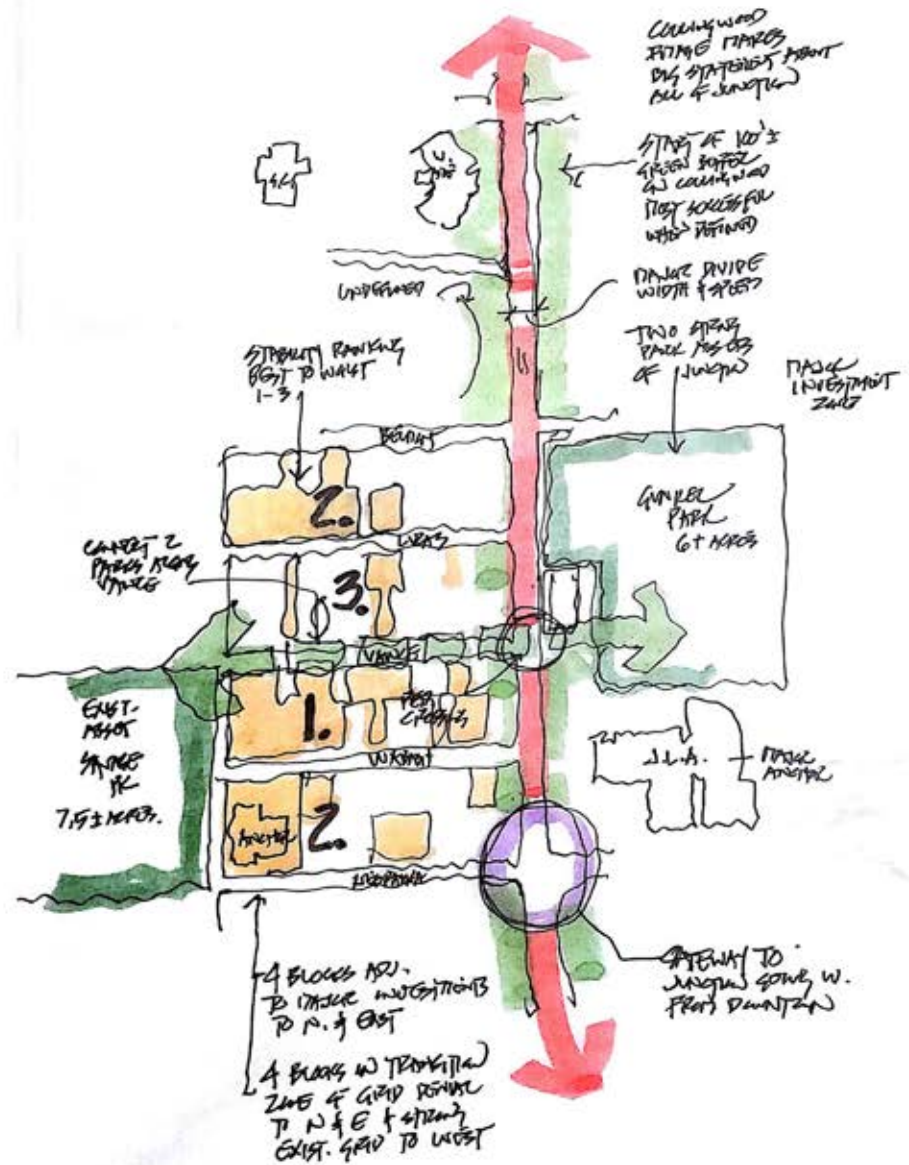 COLLINGWOOD
IMAGE MAKES
BIG STATEMENT ABOUT
ALL OF JUNCTION
START OF 100'±
GREEN BUFFER
ON COLLINGWOOD
MOST SUCCESSFUL
WHEN DEFINED
MAJOR DIVIDE
WIDTH & SPEED
UNDEFINED
TWO STRONG
PARK ASSETS
OF JUNCTION
MAJOR
INVESTMENT
ZONE
STABILITY RANKING
BEST TO WORST
1-3
BELMONT
2.
GUNKEL
PARK
6+ ACRES
LUCAS
CONNECT 2
PARKS ACROSS
VANCE
3.
VANCE
EXIST.
ASSET
SAVAGE
PK
7.5± ACRES.
1.
PED
CROSSING
WABASH
J.L.A.
MAJOR
ANCHOR
ANCHOR
2.
INDIANA
GATEWAY TO
JUNCTION GOING W.
FROM DOWNTOWN
4 BLOCKS ADJ.
TO MAJOR INVESTMENTS
TO N. & EAST
4 BLOCKS IN TRANSITION
ZONE OF GRID DENIAL
TO N & E & STRONG
EXIST. GRID TO WEST